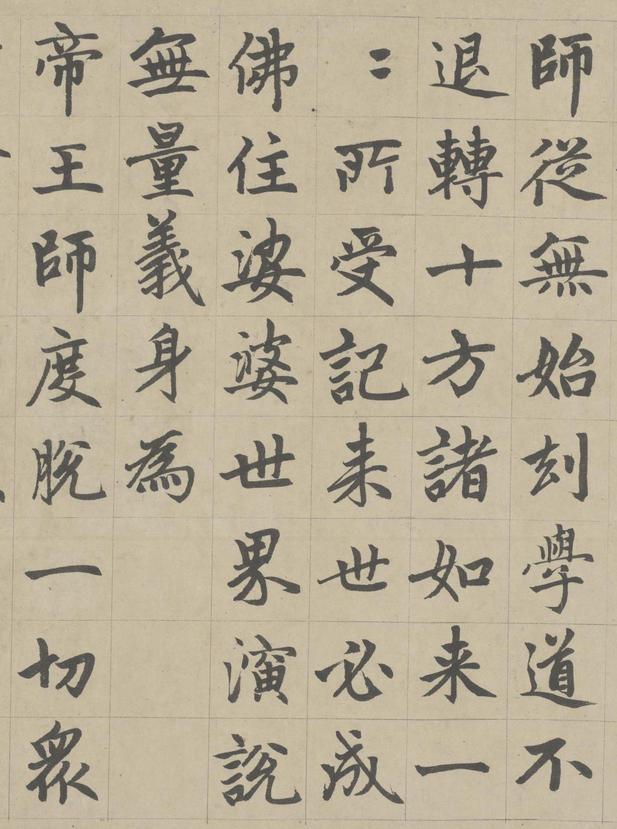 師從無始刦學道不
退轉十方諸如来一
〻所受記来世必成
佛住娑婆世界演說
無量義身為
帝王師度脫一切眾